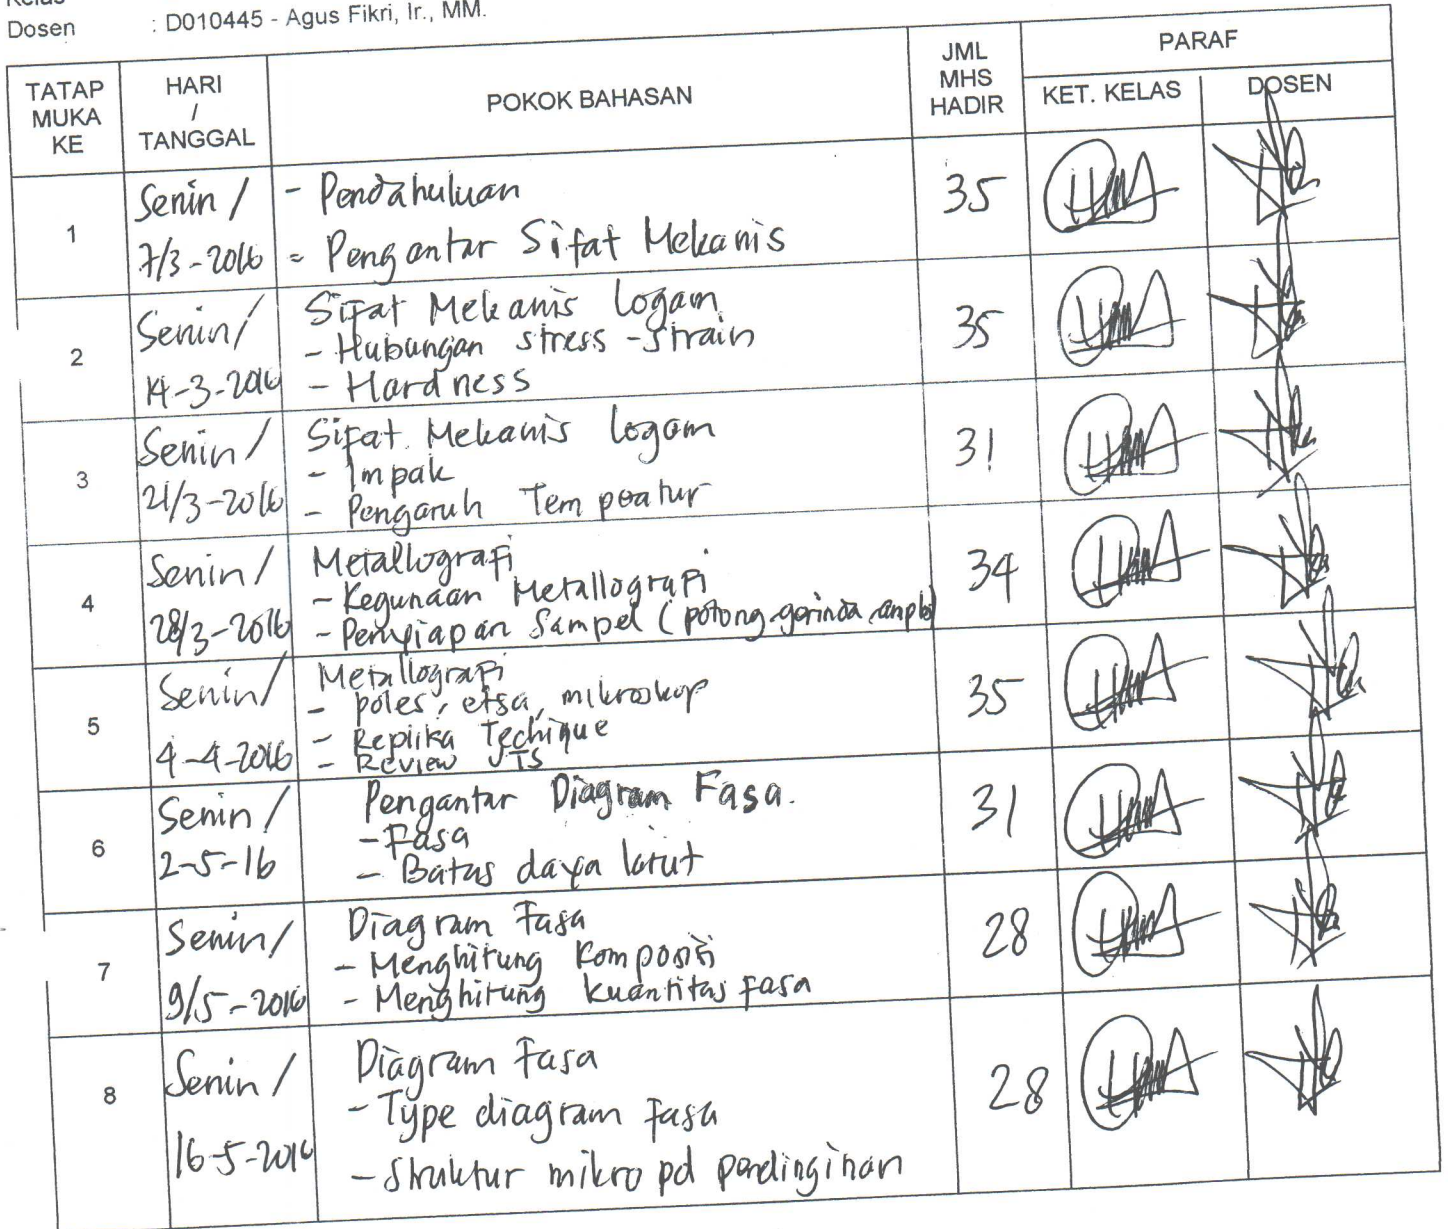 Dosen : D010445 - Agus Fikri, Ir., MM.
TATAP MUKA KE
HARI / TANGGAL
POKOK BAHASAN
JML MHS HADIR
PARAF
KET. KELAS
DOSEN
1
Senin /
7/3-2016
- Pendahuluan
= Pengantar Sifat Mekanis
35
2
Senin/
14-3-2016
Sifat Mekanis logam
- Hubungan stress-strain
- Hardness
35
3
Senin/
21/3-2016
Sifat Mekanis logam
- Impak
- Pengaruh Temperatur
31
4
Senin/
28/3-2016
Metallografi
- Kegunaan Metallografi
- Penyiapan Sampel (potong, gerinda,
34
5
Senin/
4-4-2016
Metallografi
- poles, etsa, mikroskop
- Replika Techique
- Review UTS
35
6
Senin/
2-5-16
Pengantar Diagram Fasa.
- Fasa
- Batas daya larut
31
7
Senin/
9/5-2016
Diagram Fasa
- Menghitung Komposisi
- Menghitung kuantitas fasa
28
8
Senin /
16-5-2016
Diagram Fasa
- Type diagram fasa
- Struktur mikro pd pendinginan
28